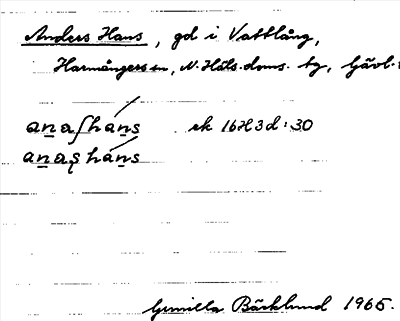 Anders Hans, gd i Vattlång,
Harmångers sn, N. Häls. doms. tg, Gävl.
anaʃhans rk 16H3d:30
anaʂ hans
Gunilla Bäcklund 1965.